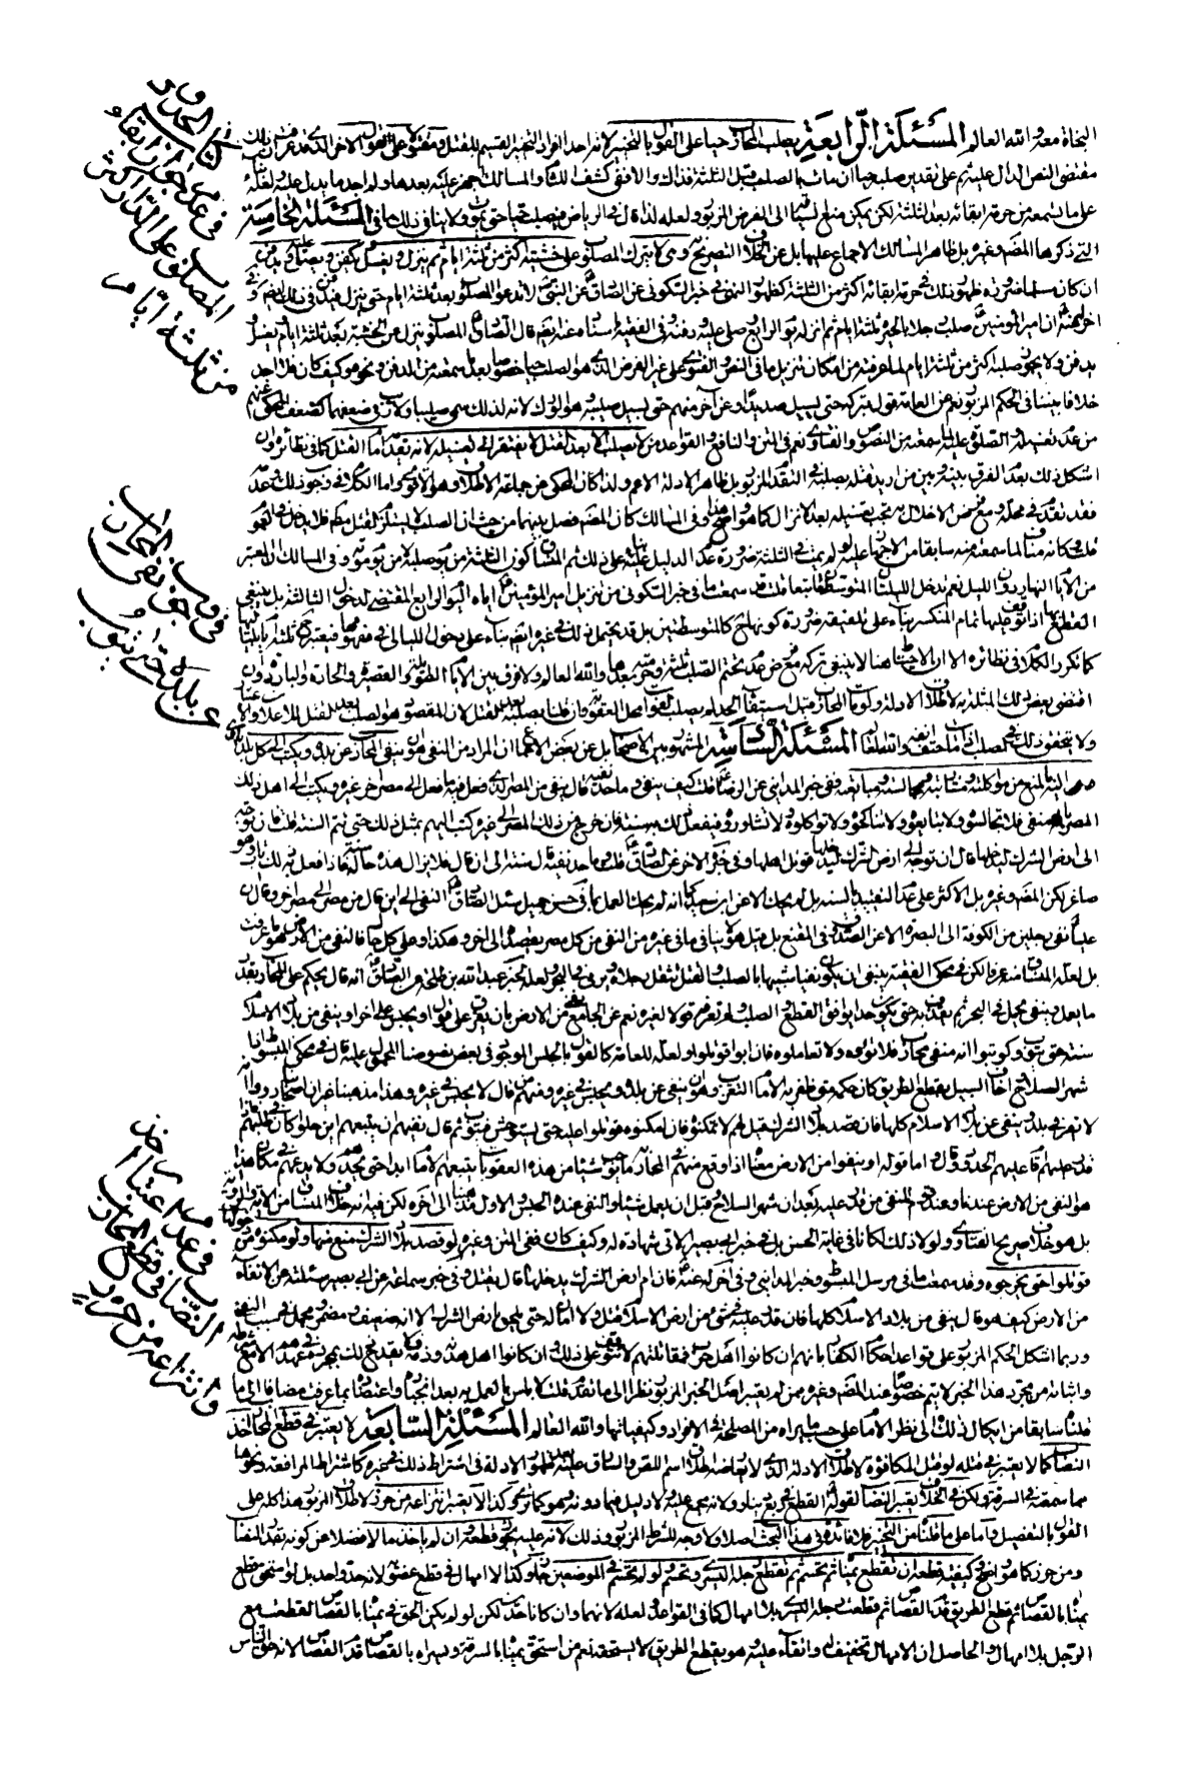 كتاب الحدود
في عدم جواز ابقاء
المصلوب على الدار اكثر
من ثلثة ايام
النجاة معه والله العالم المسئلة الرابعة يصلب المحارب حيا على القول بالتخيير لانه احد افراد التخيير القسيم للقتل ومقتولا على القول الاخر الذي قد عرفت ان ذلك
مقتضى النص الدال عليه ثم على تقدير صلبه حيا ان مات بالصلب قبل الثلثة فذاك والا ففي كشف اللثام والمسالك اجهز عليه بعدها ولم اجد ما يدل عليه ولعله
على ما تسمعه من حرمة ابقائه بعد الثلثة لكن يمكن منع لسيما الى الفرض المزبور ولعله لذا قال في الرياض يصلب حيا حتى يموت ولا ينافي ذلك ما في المسئلة الخامسة
التي ذكرها المصنف وغيره بل ظاهر المسالك الاجماع عليها بل عن الخلاف التصريح به وهي لا يترك المصلوب على خشبته اكثر من ثلثة ايام ثم ينزل ويغسل ويكفن ويصلى عليه ويدفن
ان كان مسلما ضرورة ظهور ذلك في حرمة ابقائه اكثر من الثلثة كظهور النهي في خبر السكوني عن الصادق عن النبي لا تدعوا المصلوب بعد ثلثة ايام حتى ينزل فيدفن في ذلك ايضا وفي
اخر عنه ان امير المؤمنين صلب رجلا بالحيرة ثلثة ايام ثم انزله يوم الرابع وصلى عليه ودفنه وفي الفقيه باسناده عنه ايضا قال قال الصادق المصلوب ينزل عن الخشبة بعد ثلثة ايام ويغسل
ويدفن ولا يجوز صلبه اكثر من ثلثة ايام لما عرفته من امكان تنزيل ما في النص والفتوى على غير الفرض الذي هو الصلب حيا خصوصا بعد ما سمعته من الدفن ونحوه وكيف كان فلا اجد
خلافا بيننا في الحكم المزبور نعم عن العامة قول بتركه حتى يسيل صديدا وعن آخر منهم حتى يسيل صليبه وهو الودك لانه لذلك سمي صليبا ولا ريب في ضعفهما كضعف المحكي عنهم
من عدم تغسيله والصلوة عليه لما سمعته من النصوص والفتاوى نعم في المتن والنافع والقواعد من لا يصلب الا بعد القتل لا يفتقر الى تغسيله لانه يقدمه امام القتل كما في نظائره وان
اشكل ذلك بعدم الفرق بينه وبين من اريد قتله بصلبه في التقدم المزبور بل ظاهر الادلة الاعم ولذا كان المحكي عن جماعة الاطلاق وهو الاقوى واما الكلام في وجوب ذلك وعدمه
فقد تقدم في محله ومع فرض الاخلال به يجب تغسيله بعد الانزال كما هو واضح وفي المسالك كان المصنف فصل بينهما من حيث ان الصلب لا يستلزم القتل مطلقا فلا يدخل في العموم
قلت وكانه مناف لما سمعته منه سابقا من الاجهاز عليه لو لم يمت في الثلثة ضرورة عدم الدليل عليه بناء على ذلك ثم المنساق كون الثلثة من يوم صلبه لا من يوم موته وفي المسالك ان المعتبر
من الايام النهار دون الليل نعم تدخل الليلتان المتوسطتان تبعا قلت قد سمعت ما في خبر السكوني من تنزيل امير المؤمنين اياه اليوم الرابع المقتضي لدخول الثالثة بل ينبغي
في وجوب نفي المحارب
عن بلده حتى يتوب
القطع بها اذا توقف عليها تمام المنكسر بناء على تلفيقه ضرورة كونها ح كالمتوسطتين بل قد يحتمل ذلك في غيره ايضا بناء على دخول الليالي في مفهومها فيعتبر ح ثلثة ايام بلياليها
كما تكرر الكلام في نظائره الا ان الاحتياط هنا لا ينبغي تركه مع فرض عدم تحتم الصلب ثلثة وصحته بعدها والله العالم ولا فرق بين الايام الطويلة والقصيرة والحارة والباردة وان
اقتضى بعض ذلك المثلة به لاطلاق الادلة ولو مات المحارب قبل استيفاء الحد لم يصلب لفوات محل العقوبة وان قلنا بصلبه بعد القتل لان المقصود هو الصلب بعد القتل للاعلام والاعتبار
ولا يتحقق ذلك في الصلب اذا مات حتف انفه والله العالم المسئلة السادسة المشهور بين الاصحاب بل عن بعض الاجماع ان المراد من النفي هو ان ينفى المحارب عن بلده ويكتب الى كل بلد يأوي
اليه بالمنع من مواكلته ومشاربته ومجالسته ومبايعته ففي خبر المدائني عن الرضا قلت كيف ينفى وما حد نفيه قال ينفى من المصر الذي فعل فيه ما فعل الى مصر اخر غيره ويكتب الى اهل ذلك
المصر بانه منفي فلا تجالسوه ولا تبايعوه ولا تناكحوه ولا تواكلوه ولا تشاربوه فيفعل ذلك به سنة فان خرج من ذلك المصر الى غيره كتب اليهم بمثل ذلك حتى تتم السنة قلت فان توجه
الى ارض الشرك ليدخلها قال ان توجه الى ارض الشرك ليدخلها قوتل اهلها وفي خبره الاخر عن الصادق قلت وما حد نفيه قال سنة الى ان قال فلا يزال هذه حاله سنة فاذا فعل به ذلك تاب وهو
صاغر لكن المصنف وغيره بل الاكثر على عدم التقييد بالسنة بل لم يحك الا عن ابن سعيد كما انه لم يحك العمل بما في حسن جميل سئل الصادق النفي الى اين قال من مصر الى مصر اخر وقال
ان عليا نفى رجلين من الكوفة الى البصرة الا عن الصدوق في المقنع بل قيل هو لا ينافي ما في غيره من النفي من كل مصر يقصده الى آخر وهكذا وعلى كل حال فالنفي من الارض هو ما عرفت
بل لعله المنساق منه عرفا لكن في محكي الفقيه ينبغي ان يكون نفيا شبيها بالصلب والقتل تثقل رجلاه ويرمى في البحر ولعله لخبر عبدالله بن طلحة عن الصادق انه قال يحكم على المحارب بقدر
ما يعمل وينفى يحمل في البحر ثم يقذف به حتى يكون حدا يوافق القطع والصلب ولم نعرفه قولا لغيره نعم عن الجامع نفي من الارض بان يغرق على قول او يحبس على اخر او ينفى من بلاد الاسلام
سنة حتى يتوب وكوتبوا انه منفي محارب فلا تؤووه ولا تعاملوه فان ابوا قوتلوا ولعله للعامة كالقول بالحبس المروي في بعض نصوصنا المحمول عليه قال في محكي المبسوط اذا
شهر السلاح واخاف السبيل يقطع الطريق كان حكمه متى ظفر به الامام التعزير وهو ان ينفى عن بلده ويحبس في غيره ومنهم من قال لا يحبس في غيره وهذا مذهبنا غير ان اصحابنا رووا انه
لا يقر في بلد وينفى عن بلاد الاسلام كلها فان قصد بلاد الشرك قيل لهم لا تمكنوه فان امكنوه قوتلوا عليه حتى يستوحش فيتوب ثم قال نفيهم ان يتبعهم اين حلوا كان في طلبهم فاذا
في عدم اعتبار اخذ
النصاب في قطع المحارب
وانتزاعه من حرز
قدر عليهم اقام عليهم الحدود وقال واما قوله او ينفوا من الارض معناه اذا وقع منهم في المحاربة ما يوجب شيئا من هذه العقوبات يتبعهم الامام ابدا حتى يجدهم ولا يدعهم في مكان هذا
هو النفي من الارض عندنا وعند قوم المنفي من قدر عليه بعد ان شهر السلاح قبل ان يعمل شيئا والنفي عنده الحبس والاول مذهبنا الى آخره لكن فيه انه خلاف المنساق من الآية والرواية
بل هو خلاف صريح الفتاوى ولولا ذلك لكانا في غاية الحسن بل في خبر ابي بصير الآتي شهادة له وكيف كان ففي المتن وغيره لو قصد بلاد الشرك منع منها ولو مكنوه من دخولها
قوتلوا حتى يخرجوه وقد سمعت ما في مرسل المبسوط وخبر المدائني وفي آخر له عنه فان ام ارض الشرك يدخلها قال يقتل وفي خبر سماعة عن ابي بصير سئلته عن الانفاء
من الارض كيف هو قال ينفى من بلاد الاسلام كلها فان قدر عليه في شيء من ارض الاسلام قتل ولا امان له حتى يلحق بارض الشرك الا انه ضعيف ومضمر ومجمل في سبب النفي
وربما اشكل الحكم المزبور على قواعد احكام الكفار بانهم ان كانوا اهل حرب فمقاتلتهم لا تتوقف على ذلك وان كانوا اهل هدنة وذمة فلا يقدح ذلك بمجرده في عهدهم الا مع شرطه
واثباته من مجرد هذا الخبر لا يتم خصوصا عند المصنف وغيره ممن لم يعتبر اصل الخبر المزبور نظرا الى ما تقدم قلت لا باس بالعمل به بعد انجباره واعتضاده بما عرفت مضافا الى ما
قلناه سابقا من ايكال ذلك الى نظر الامام على حسب ما يراه من المصلحة في الافراد وكيفياتها والله العالم المسئلة السابعة لا يعتبر في قطع المحارب اخذ
النصاب كما لا يعتبر في قتله لو قتل المكافؤة لاطلاق الادلة الذي لا يعارضه اطلاق اسم اللص والسارق عليه بعد ظهور الادلة في اشتراط ذلك في غيره كاشتراط المرافعة ونحوها
مما سمعته في السرقة ولكن في الخلاف يعتبر النصاب لقوله القطع في ربع دينار ولانه مجمع عليه ولا دليل فيما دونه وهو كما ترى وكذا لا يعتبر انتزاعه من حرز لاطلاق المزبور هذا كله على
القول بالتفصيل واما على ما قلناه من التخيير فلا فائدة في هذا البحث اصلا ولا وجه للشرط المزبور وذلك لانه عليه يجوز قطعه وان لم ياخذ مالا فضلا عن كونه بقدر النصاب
ومن حرز كما هو واضح وفي كيفية قطعه ان تقطع يمناه ثم تحسم ثم تقطع رجله اليسرى وتحسم ولو لم تحسم في الموضعين جاز وكذا الامهال في قطع عضويه لانه حد واحد بل لو استحق قطع
يمناه بالقصاص ثم قطع الطريق قدم القصاص ثم قطعت رجله اليسرى بلا امهال كما في القواعد ولعله لانهما وان كانا حدين لكن لو لم يكن الحق في يمناه بالقصاص لقطعت مع
الرجل بلا امهال والحاصل ان الامهال تخفيف له وابقاء عليه وهو بقطع الطريق لا يستحقه نعم من استحق يمناه بالسرقة ويسراه بالقصاص قدم القصاص لانه حق الناس